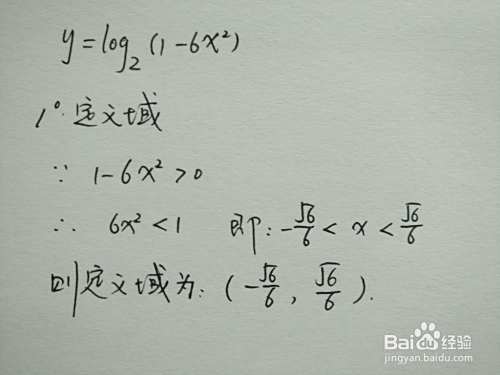 y=log₂(1-6x²)
1°.定义域
∵ 1-6x²>0
∴ 6x²<1 即:-√6/6<x<√6/6
则定义域为:(-√6/6, √6/6).
Baidu经验
jingyan.baidu.com